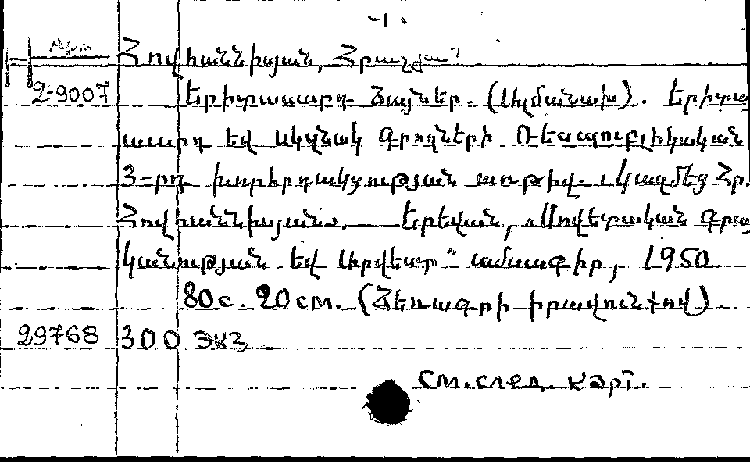 -1.
Հովհաննիսյան, Հրաչյա
2-9007 Երիտասարդ Ձայներ. (Ալմանախ). Երիտա
սարդ եվ սկսնակ գրողների Ռեսպուբլիկական
3-րդ խորհրդակցության առթիվ. Կազմեց Հր.
Հովհաննիսյանը. Երեվան, «Սովետական գրա
կանության եվ արվեստ" ամսագիր, 1950
80с. 20см. (Ձեռագրի իրավունքով)
29768 300 экз
см. след. карт.